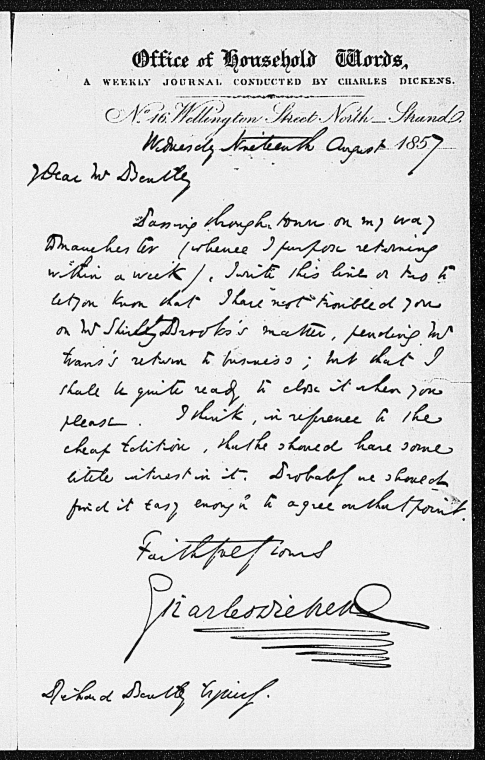 Office of Household Words,
A WEEKLY JOURNAL CONDUCTED BY CHARLES DICKENS.
No. 16, Wellington Street North, Strand.
Wednesday Nineteenth August 1857
My Dear Mr Bentley
Passing through town on my way
to Manchester (whence I purpose returning
within a week), I write this line or two to
let you know that I have not troubled you
on Mr Shirley Brooks's matter, pending Mr
Evans's return to business; but that I
shall be quite ready to close it when you
please. I think, in reference to the
cheap Edition, that he should have some
little interest in it. Probably we should
find it easy enough to agree on that point.
Faithfully Yours
Charles Dickens
Richard Bentley Esquire.